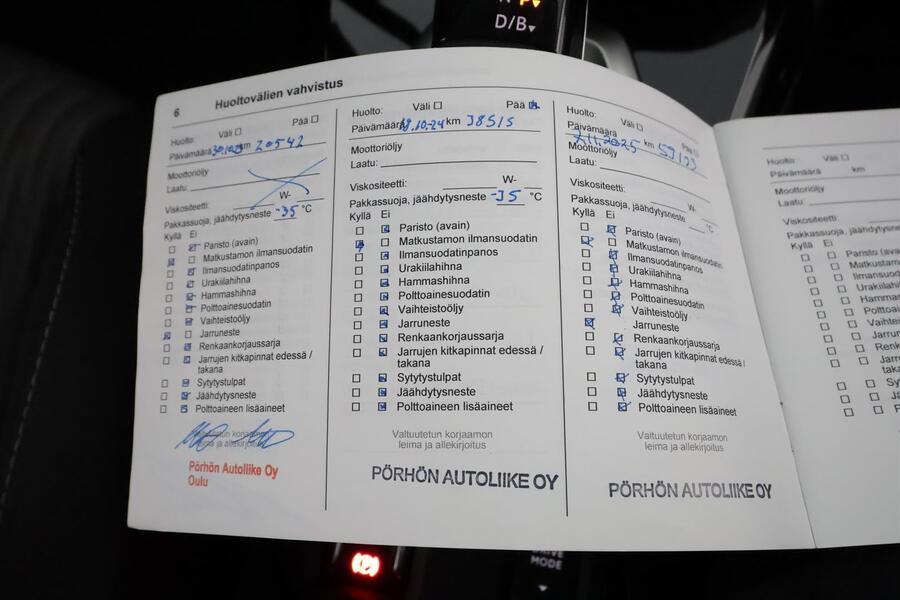 D/B
6 Huoltovälien vahvistus
Huolto: Väli Pää
Päivämäärä km 20542
Moottoriöljy
Laatu:
Viskositeetti: W-
Pakkassuoja, jäähdytysneste -35 °C
Kyllä Ei
Paristo (avain)
Matkustamon ilmansuodatin
Ilmansuodatinpanos
Urakiilahihna
Hammashihna
Polttoainesuodatin
Vaihteistoöljy
Jarruneste
Renkaankorjaussarja
Jarrujen kitkapinnat edessä /
takana
Sytytystulpat
Jäähdytysneste
Polttoaineen lisäaineet
Valtuutetun korjaamon
leima ja allekirjoitus
Pörhön Autoliike Oy
Oulu
Huolto: Väli Pää
Päivämäärä .10.-24 km 38515
Moottoriöljy
Laatu:
Viskositeetti: W-
Pakkassuoja, jäähdytysneste -35 °C
Kyllä Ei
Paristo (avain)
Matkustamon ilmansuodatin
Ilmansuodatinpanos
Urakiilahihna
Hammashihna
Polttoainesuodatin
Vaihteistoöljy
Jarruneste
Renkaankorjaussarja
Jarrujen kitkapinnat edessä /
takana
Sytytystulpat
Jäähdytysneste
Polttoaineen lisäaineet
Valtuutetun korjaamon
leima ja allekirjoitus
PÖRHÖN AUTOLIIKE OY
Huolto: Väli Pää
Päivämäärä .11.2025 km 59133
Moottoriöljy
Laatu:
Viskositeetti: W-
Pakkassuoja, jäähdytysneste °C
Kyllä Ei
Paristo (avain)
Matkustamon ilmansuodatin
Ilmansuodatinpanos
Urakiilahihna
Hammashihna
Polttoainesuodatin
Vaihteistoöljy
Jarruneste
Renkaankorjaussarja
Jarrujen kitkapinnat edessä /
takana
Sytytystulpat
Jäähdytysneste
Polttoaineen lisäaineet
Valtuutetun korjaamon
leima ja allekirjoitus
PÖRHÖN AUTOLIIKE OY
Huolto: Väli
Päivämäärä km
Moottoriöljy
Laatu:
Viskositeetti:
Kyllä Ei
DRIVE
MODE